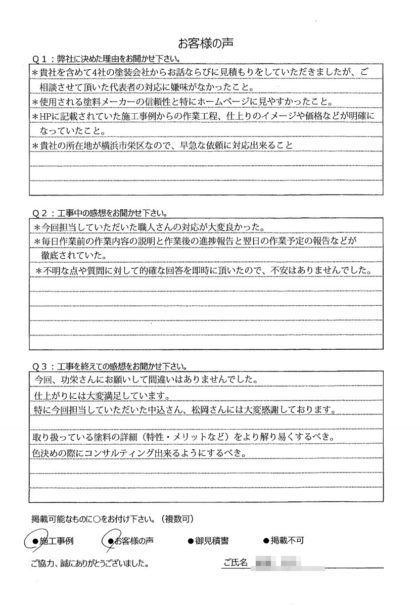 お客様の声
Q1：弊社に決めた理由をお聞かせ下さい。
＊貴社を含めて4社の塗装会社からお話ならびに見積もりをしていただきましたが、ご
相談させて頂いた代表者の対応に嫌味がなかったこと。
＊使用される塗料メーカーの信頼性と特にホームページに見やすかったこと。
＊HPに記載されていた施工事例からの作業工程、仕上りのイメージや価格などが明確に
なっていたこと。
＊貴社の所在地が横浜市栄区なので、早急な依頼に対応出来ること
Q2：工事中の感想をお聞かせ下さい。
＊今回担当していただいた職人さんの対応が大変良かった。
＊毎日作業前の作業内容の説明と作業後の進捗報告と翌日の作業予定の報告などが
徹底されていた。
＊不明な点や質問に対して的確な回答を即時に頂いたので、不安はありませんでした。
Q3：工事を終えての感想をお聞かせ下さい。
今回、功栄さんにお願いして間違いはありませんでした。
仕上がりには大変満足しています。
特に今回担当していただいた中込さん、松岡さんには大変感謝しております。
取り扱っている塗料の詳細（特性・メリットなど）をより解り易くするべき。
色決めの際にコンサルティング出来るようにするべき。
掲載可能なものに○をお付け下さい。（複数可）
●施工事例 ●お客様の声 ●御見積書 ●掲載不可
ご協力、誠にありがとうございました。 ご氏名